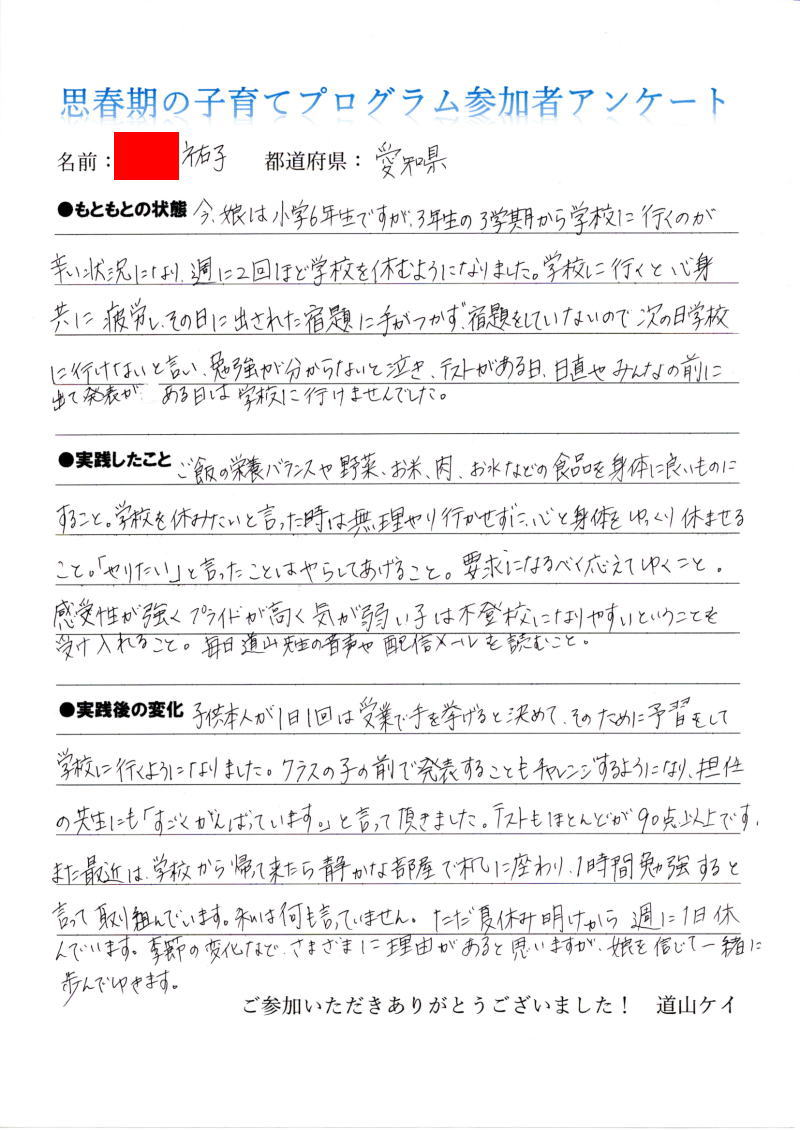 思春期の子育てプログラム参加者アンケート
名前： 祐子 都道府県： 愛知県
●もともとの状態 今、娘は小学6年生ですが、3年生の3学期から学校に行くのが
辛い状況になり、週に2回ほど学校を休むようになりました。学校に行くと心身
共に疲労し、その日に出された宿題に手がつかず、宿題をしていないので次の日学校
に行けないと言い、勉強が分からないと泣き、テストがある日、日直やみんなの前に
出て発表が ある日は学校に行けませんでした。
●実践したこと ご飯の栄養バランスや野菜、お米、肉、お水などの食品を身体に良いものに
すること。学校を休みたいと言った時は無理やり行かせずに、心と身体をゆっくり休ませる
こと。「やりたい」と言ったことはやらしてあげること。要求になるべく応えてゆくこと。
感受性が強くプライドが高く気が弱い子は不登校になりやすいということを
受け入れること。毎日道山先生の音声や配信メールを読むこと。
●実践後の変化 子供本人が1日1回は授業で手を挙げると決めて、そのために予習をして
学校に行くようになりました。クラスの子の前で発表することもチャレンジするようになり、担任
の先生にも「すごくがんばっています。」と言って頂きました。テストもほとんどが90点以上です。
また最近は、学校から帰って来たら静かな部屋で机に座わり、1時間勉強すると
言って取り組んでいます。私は何も言っていません。ただ夏休み明けから週に1日休
んでいます。季節の変化など、さまざまに理由があると思いますが、娘を信じて一緒に
歩んでゆきます。
ご参加いただきありがとうございました！ 道山ケイ